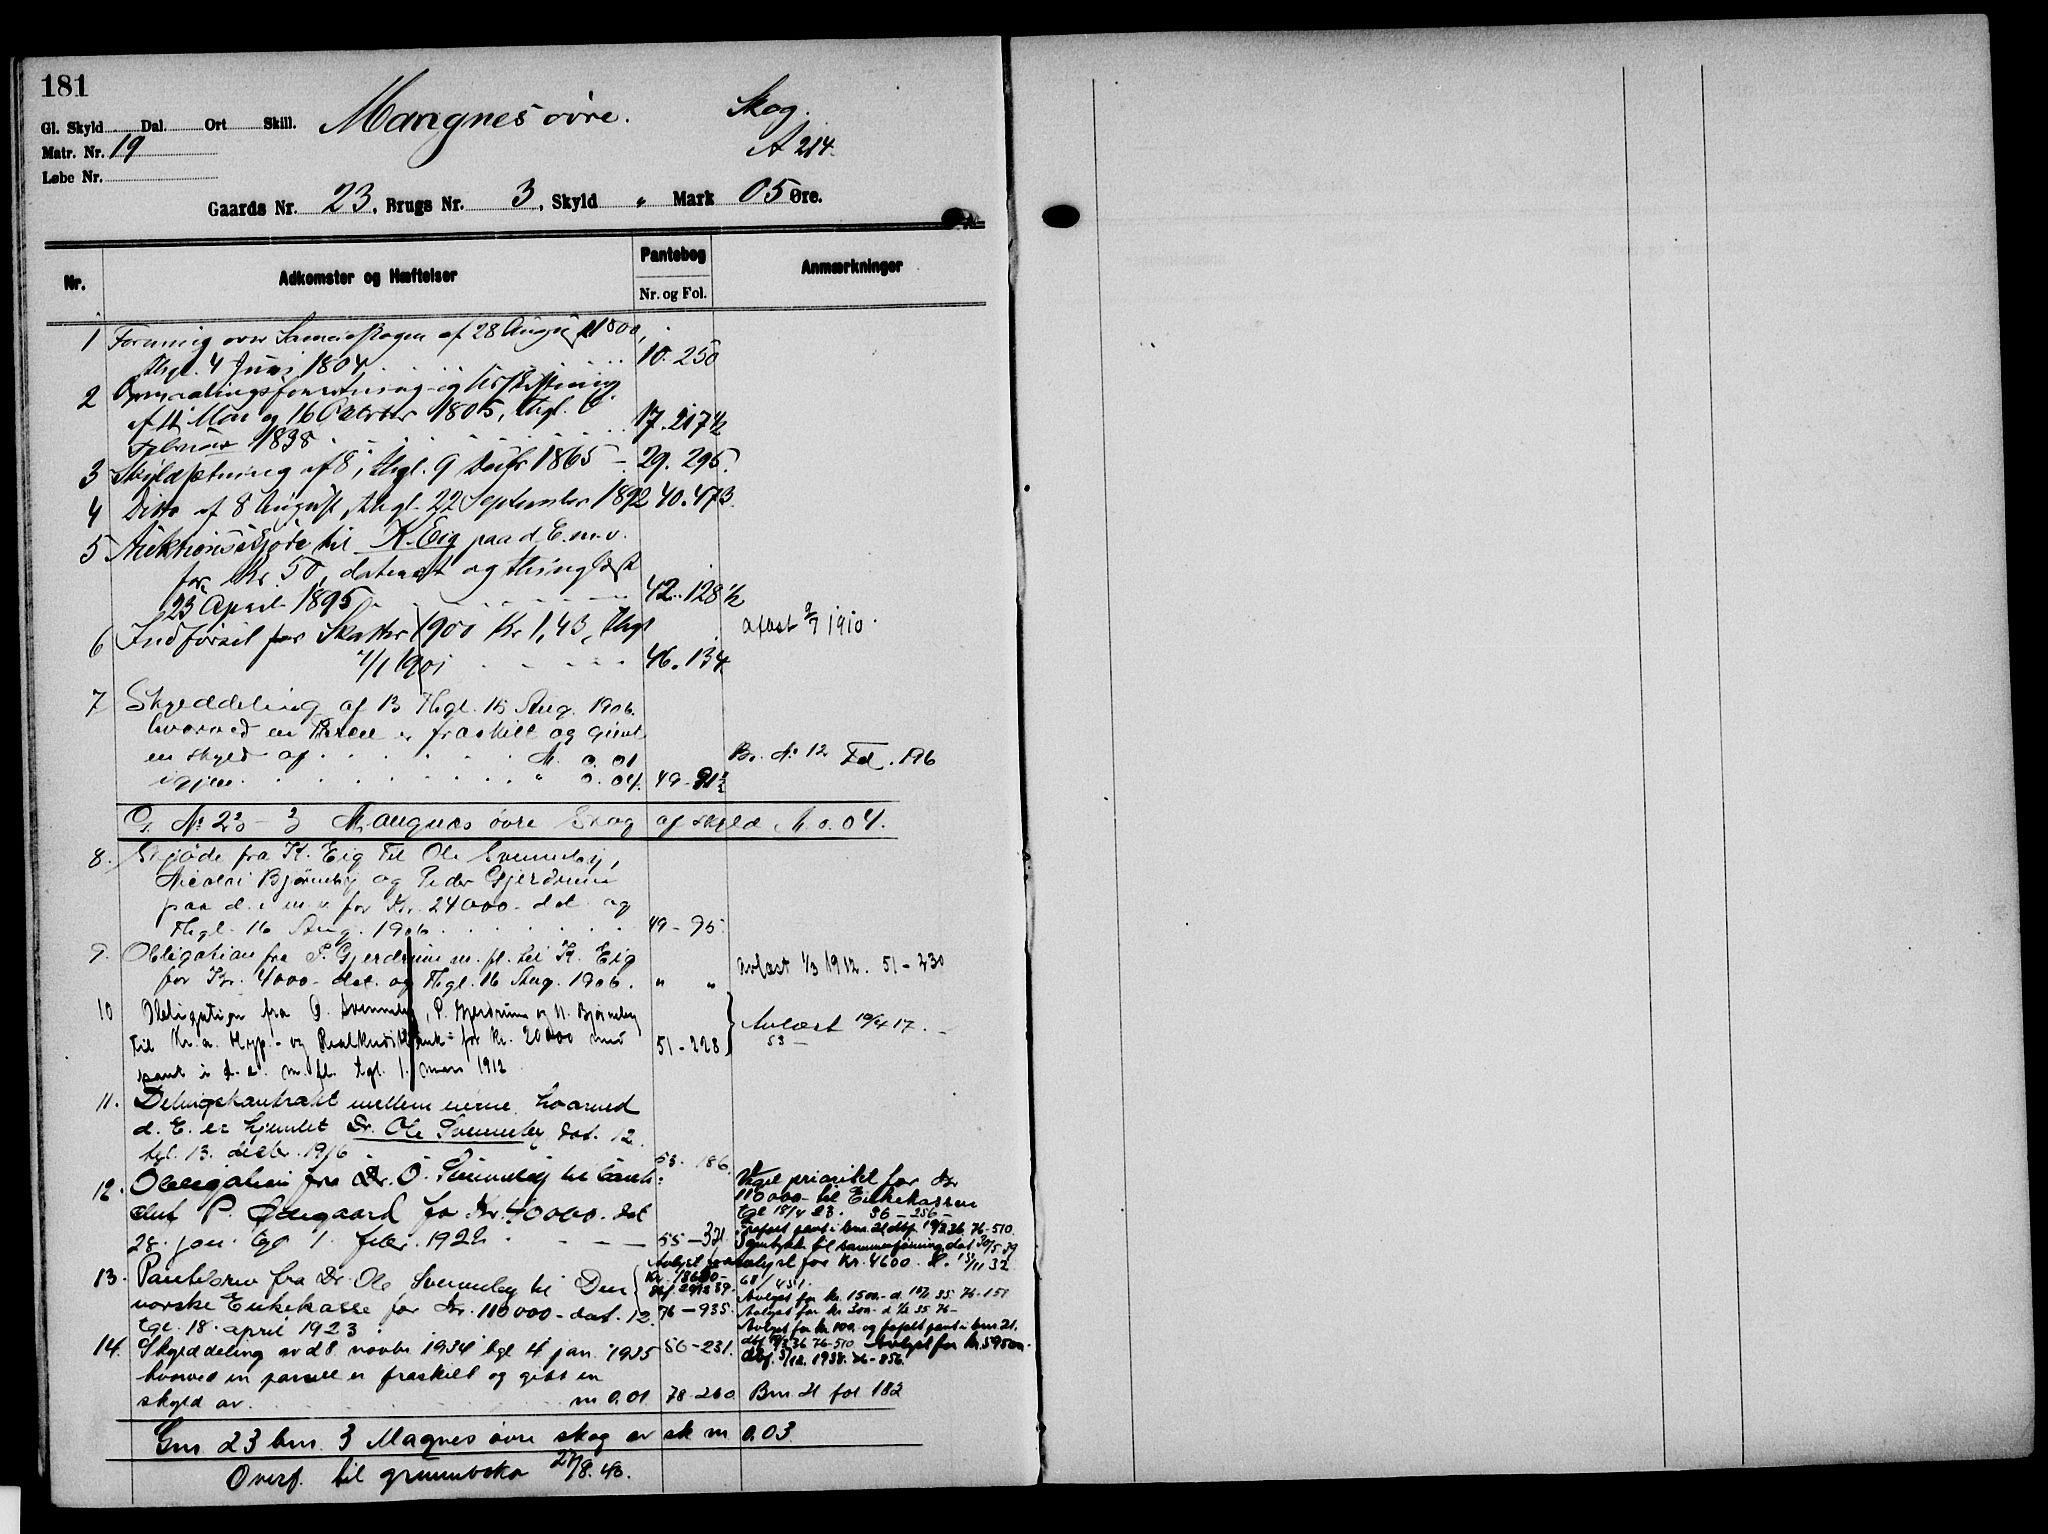 181
Gl. Skyld Dal. Ort Skill.
Mangnes øvre. Skog.
Matr. Nr. 19
A 214.
Løbe Nr.
Gaards Nr. 23, Brugs Nr. 3, Skyld " Mark 05 Øre.
Nr. Adkomster og Hæftelser Pantebog Anmærkninger
Nr. og Fol.
1 Forening over Sameieskogen af 28 August 1800,
thgl. 4 Juni 1804 10. 250
2 Opmaalingsforretning og Udskiftning
af Mai og 16 October 1805, thgl.
Februar 1838 17. 217 1/2
3 Skyldsætning af 8, thgl. 9 1865 29. 295.
4 Ditto af 8 August, thgl. 22 September 1892 40. 473.
5 Auktionsskjøde til K. Eig paa d. E. m. v.
for Kr. 50, dateret og thinglæst
23 April 1895 42. 128 1/2
6 Indførsel for Skatter 1900 Kr 1,43, thgl
1901 46. 134 aflæst 2/7 1910.
7 Skylddeling af 13 Thgl. 16 Aug. 1906.
hvorved en Parcel er fraskilt og givet
en skyld af M. 0.01 Br. № 12 Fol. 196
igjen " 0.04. 49 - 91 1/2
G. № 23 - 3 Mangnes øvre Skog af skyld M. 0.04.
8. Skjøde fra K. Eig til Ole Svenneby,
Nicolai Bjørneby og Peder Gjerdrum
paa d. e. m. v. for Kr. 24000 - dat. og
Thgl. 16 Aug. 1906 49 - 95
9. Obligation fra P. Gjerdrum m. fl. til K. Eig
for Kr. 4000 - dat. og Thgl. 16 Aug. 1906. " " Avlæst 1/3 1912. 51 - 230
10 Obligation fra O. Svenneby, P. Gjerdrum og N. Bjørneby
til Kr.a. Hyp.- og Realkreditbank for kr. 20000 med 51 - 228 Avlæst 19/4 17. 53 -
pant i d. e. m. fl. tgl. 1. mars 1912
11. Delingskontrakt mellem eierne hvorved
d. E. er hjemlet Dr. Ole Svenneby dat. 12
tgl. 13. desbr. 1916 53. 186.
12. Obligation fra Dr. O. Svenneby til
P. Ødegaard for Kr. 40000. dat
28. jan. tgl 1. febr. 1922 55 - 371
Veget prioritet for kr
110000 - til Enkekassen
tgl 18/4 23. 56 - 256 -
Samtykke til sammenføining dat 30/5 39
Avlyst for Kr. 4600. 15/11 32
13. Pantebrev fra Dr. Ole Svenneby til Den
norske Enkekasse for Kr. 110000 - dat. 12 76 - 935.
tgl. 18. april 1923 56 - 231.
68 / 451.
Avlyst for kr. 1500 - 35 76 - 151
Avlyst for kr 300 - 35 76 -
Avlyst for kr 100 - og frafalt pant i brn. 21.
36 76 - 510 Avlyst for kr. 59500 -
1938. 76 - 856.
14. Skylddeling av d 8 novbr 1934 tgl 4 jan. 1935
hvorved en parsell er fraskilt og gitt en
skyld av m 0,01 78 - 260 Brn 21 fol 182
Gnr. 23 bnr. 3 Magnes øvre skog av sk m 0.03.
Overf. til grunnboka 27/8. 43.